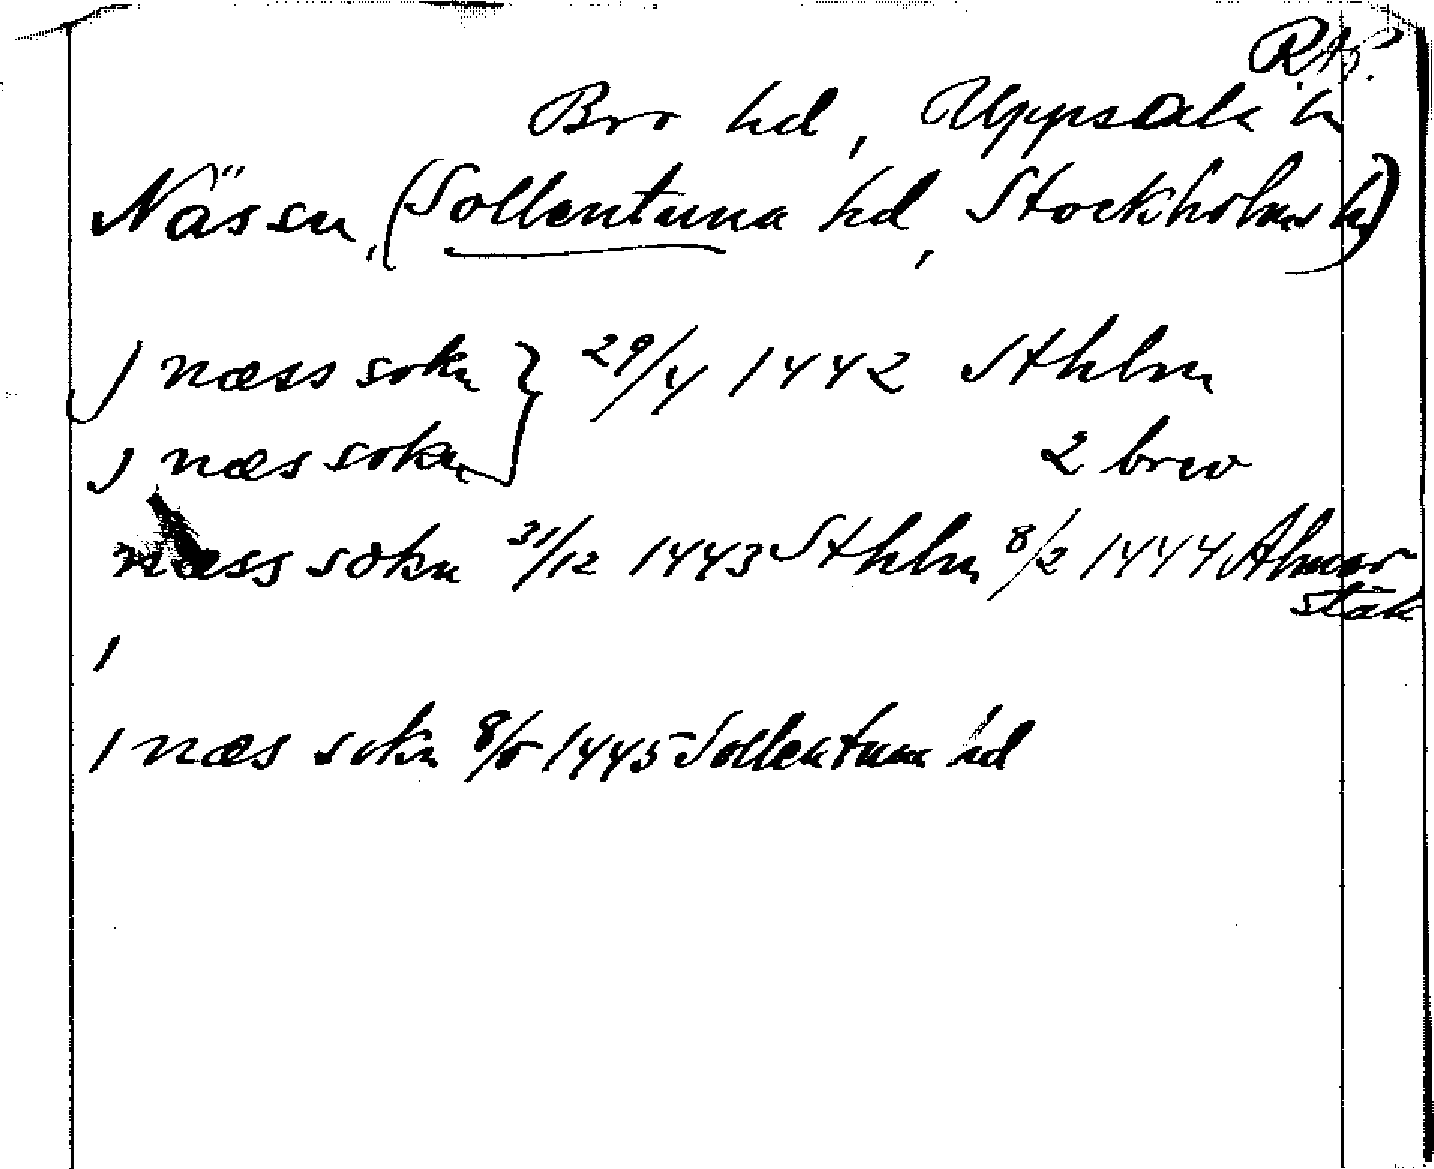 RAp.
Bro hd, Uppsala l
Näs sn, (Sollentuna hd, Stockholms l)
J næss sokn } 29/4 1442 Sthlm
J næs sokn 2 brev
næss sokn 31/12 1443 Sthlm 8/2 1444 Almar
stäk
I
I næs sokn 8/5 1445 Sollentuna hd